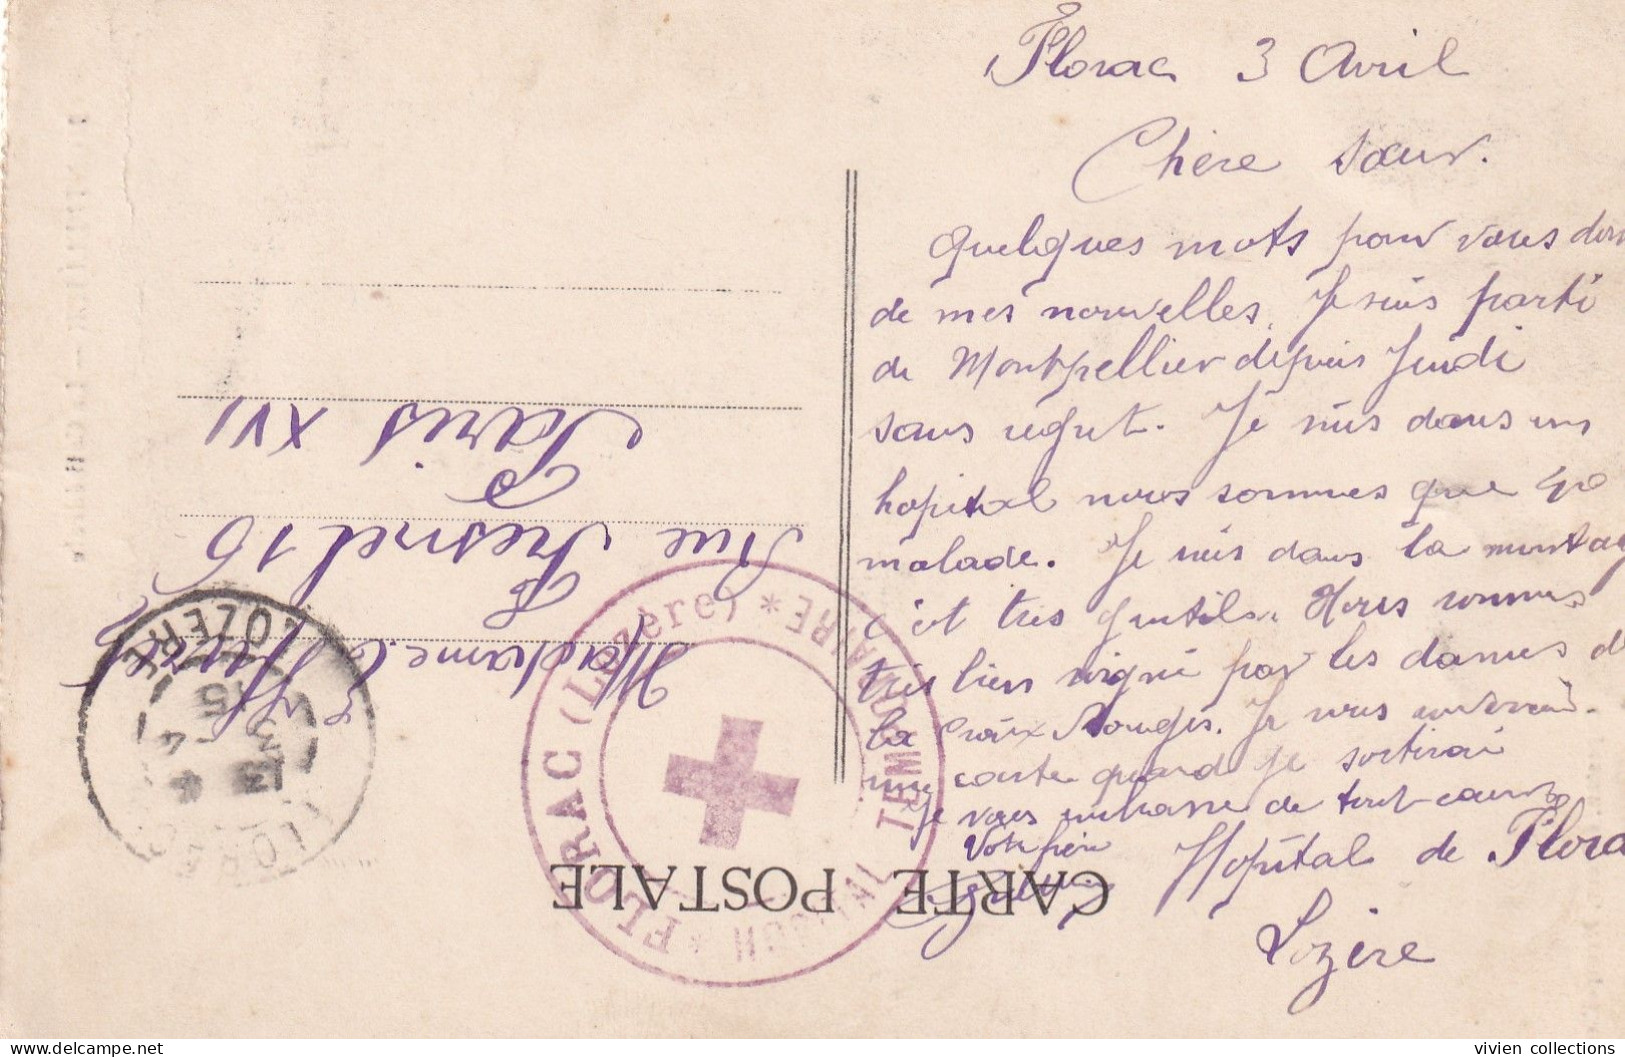 Florac 3 Avril
Chère sœur.
quelques mots pour vous don
de mes nouvelles. Je suis parti
de Montpellier depuis Jeudi
sans regret. Je suis dans un
hopital nous sommes que 40
malade. Je suis dans la montag
c'est très gentils. Nous sommes
très bien soigné par les dames d
la Croix Rouges. Je vous
une carte quand je sortirai
Je vous embrasse de tout cœur
Votre frère
Hopital de Flora
Lozère
CARTE POSTALE
Madame
Rue Fresnel 16
Paris XVI
FLORAC (Lozère) * HÔPITAL TEMPORAIRE *
FLORAC LOZERE
13 *
3 -4
15
vivien collections